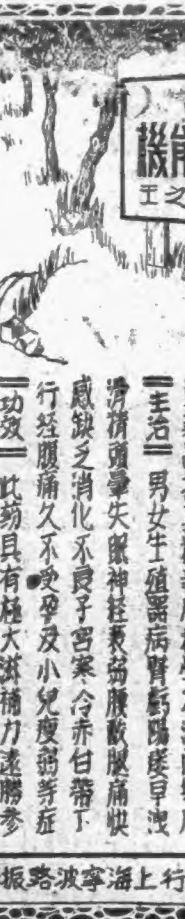 能機
之王
=主治= 男女生殖器病腎虧陽痿早洩
滑精頭暈失眠神経衰弱腰酸腿痛快
感缺乏消化不良子宮寒冷赤白帶下
行経腹痛久不受孕及小兒瘦弱等症
=功效= 此药具有極大滋補力遠勝參
行上海寧波路振